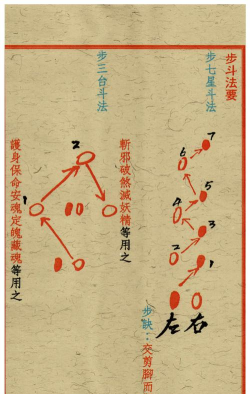 步斗法要
步七星斗法
7
6
5
4
3
2
1
左 右
步訣：交剪腳而
斬邪破煞滅妖精等用之
步三台斗法
2
1
護身保命安魂定魄藏魂等用之